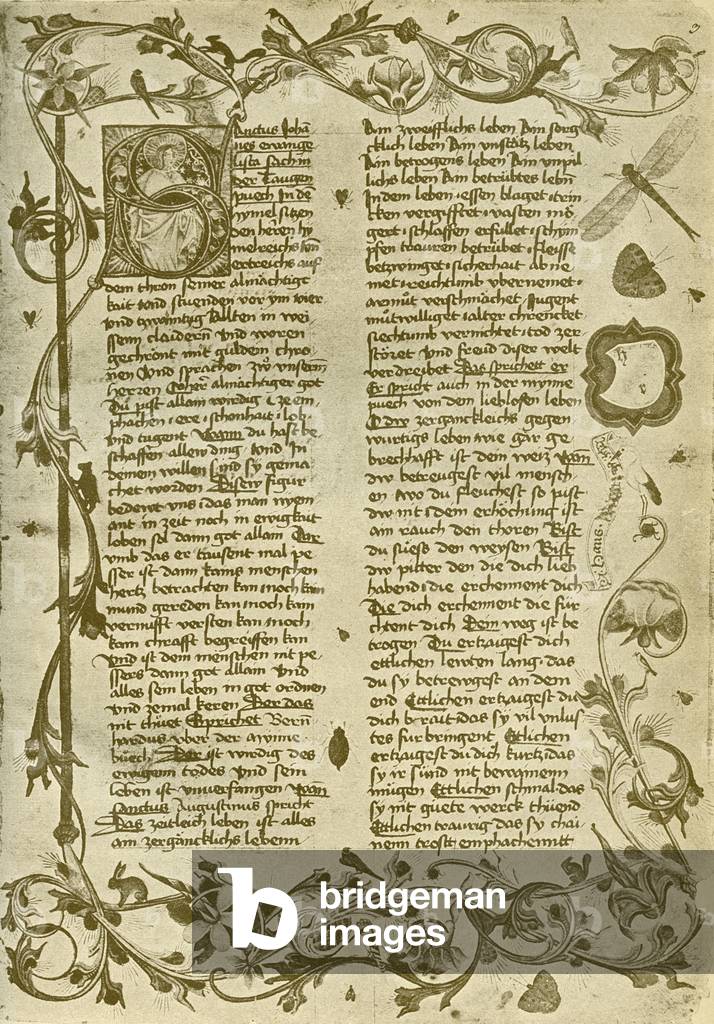 3
Sanctus Johā
nes ewange
lista sach in
der Taugen
puech In dē
hymel sitzen
den herren hy
melreichs vnd
ertreichs auf
dem thron seiner almächtigk
kait vnd stuenden vor ym vier
vnd zwaintzig Allten in weis
sem claidern vnd woren
gechrönt mit guldem chro
nen Vnd sprachen zw vnserm
herzen almächtiger got
Du pist allain wirdig
phachen · ere · schonhait · lob ·
vnd tugent Wann du hast be
schaffen allew ding · vnd In
deinem willen sind sy gema
chet worden Disew figur
bedewt vns · das man nyem
ant in zeit noch in ewigkait
loben sol dann got allain Dar
vmb das er tausent mal pe
sser ist dann kains menschen
hertz betrachten kan noch kain
mund gereden kan noch kain
vernufft versten kan noch
kain chrafft begreiffen kan
Vnd ist dem menschen nit pe
ssers dann got allain Vnd
alles sein leben in got ordnen
vnd zemal keren Der das
nit thuet Sprichet Bern
hardus vber der mynne
buech Der ist wirdig des
ewigenn todes Vnd sein
leben ist vnuerfangen Wan
Sanctus Augustinus spricht
Das zeitleich leben ist alles
ain zergäncklichs lebenn
Ain zweifflichs leben Ain sorg
cklich leben Ain vnstätz leben
Ain betrogens leben Ain vnpil
lichs leben Ain betrübtes lebn
In dem leben · essen blaget · trin
cken vergifftet · vasten mö
gert · schlaffen erfullet · schym
pfen trauren betrübet · fleisse
betzwinget · sicherhait ab ne
met · reichtumb vbernemet ·
armüt verschmächet · Jugent
mütwilliget · alter chrencket
siechtumb vernichtet · tod zer
störet Vnd freud diser welt
verdreibet Das sprichett er
Er spricht auch in der mynne
puech von dem lieblosen leben
O dw zergänckleichs gegen
wurtigs leben wie gar ge
brechhafft ist dein weiz Wan
dw betreugest vil mensch
en wo du fleuchest so pist
dw nit · dein erhöchung ist
am rauch den thoren Bist
du süess den weysen Bist
dw pitter den die dich lieb
habend · die erchennent dich
Die dich erchennent die für
chtent dich Dein weg ist be
trogen Du ertzaigest dich
ettlichen lewten lang · das
du sy betrewgest an dem
end Ettlichen ertzaigest du
dich brait · das sy vil vnlus
tes furbringent Ettlichen
ertzaigest du dich kurtz · das
sy ir sünd nit bewainenn
mügen Ettlichen schmal · das
sy nit guete werck thuend
Ettlichen traurig das sy chai
nenn trost emphachenntt
h
v
haus
b
bridgeman
images